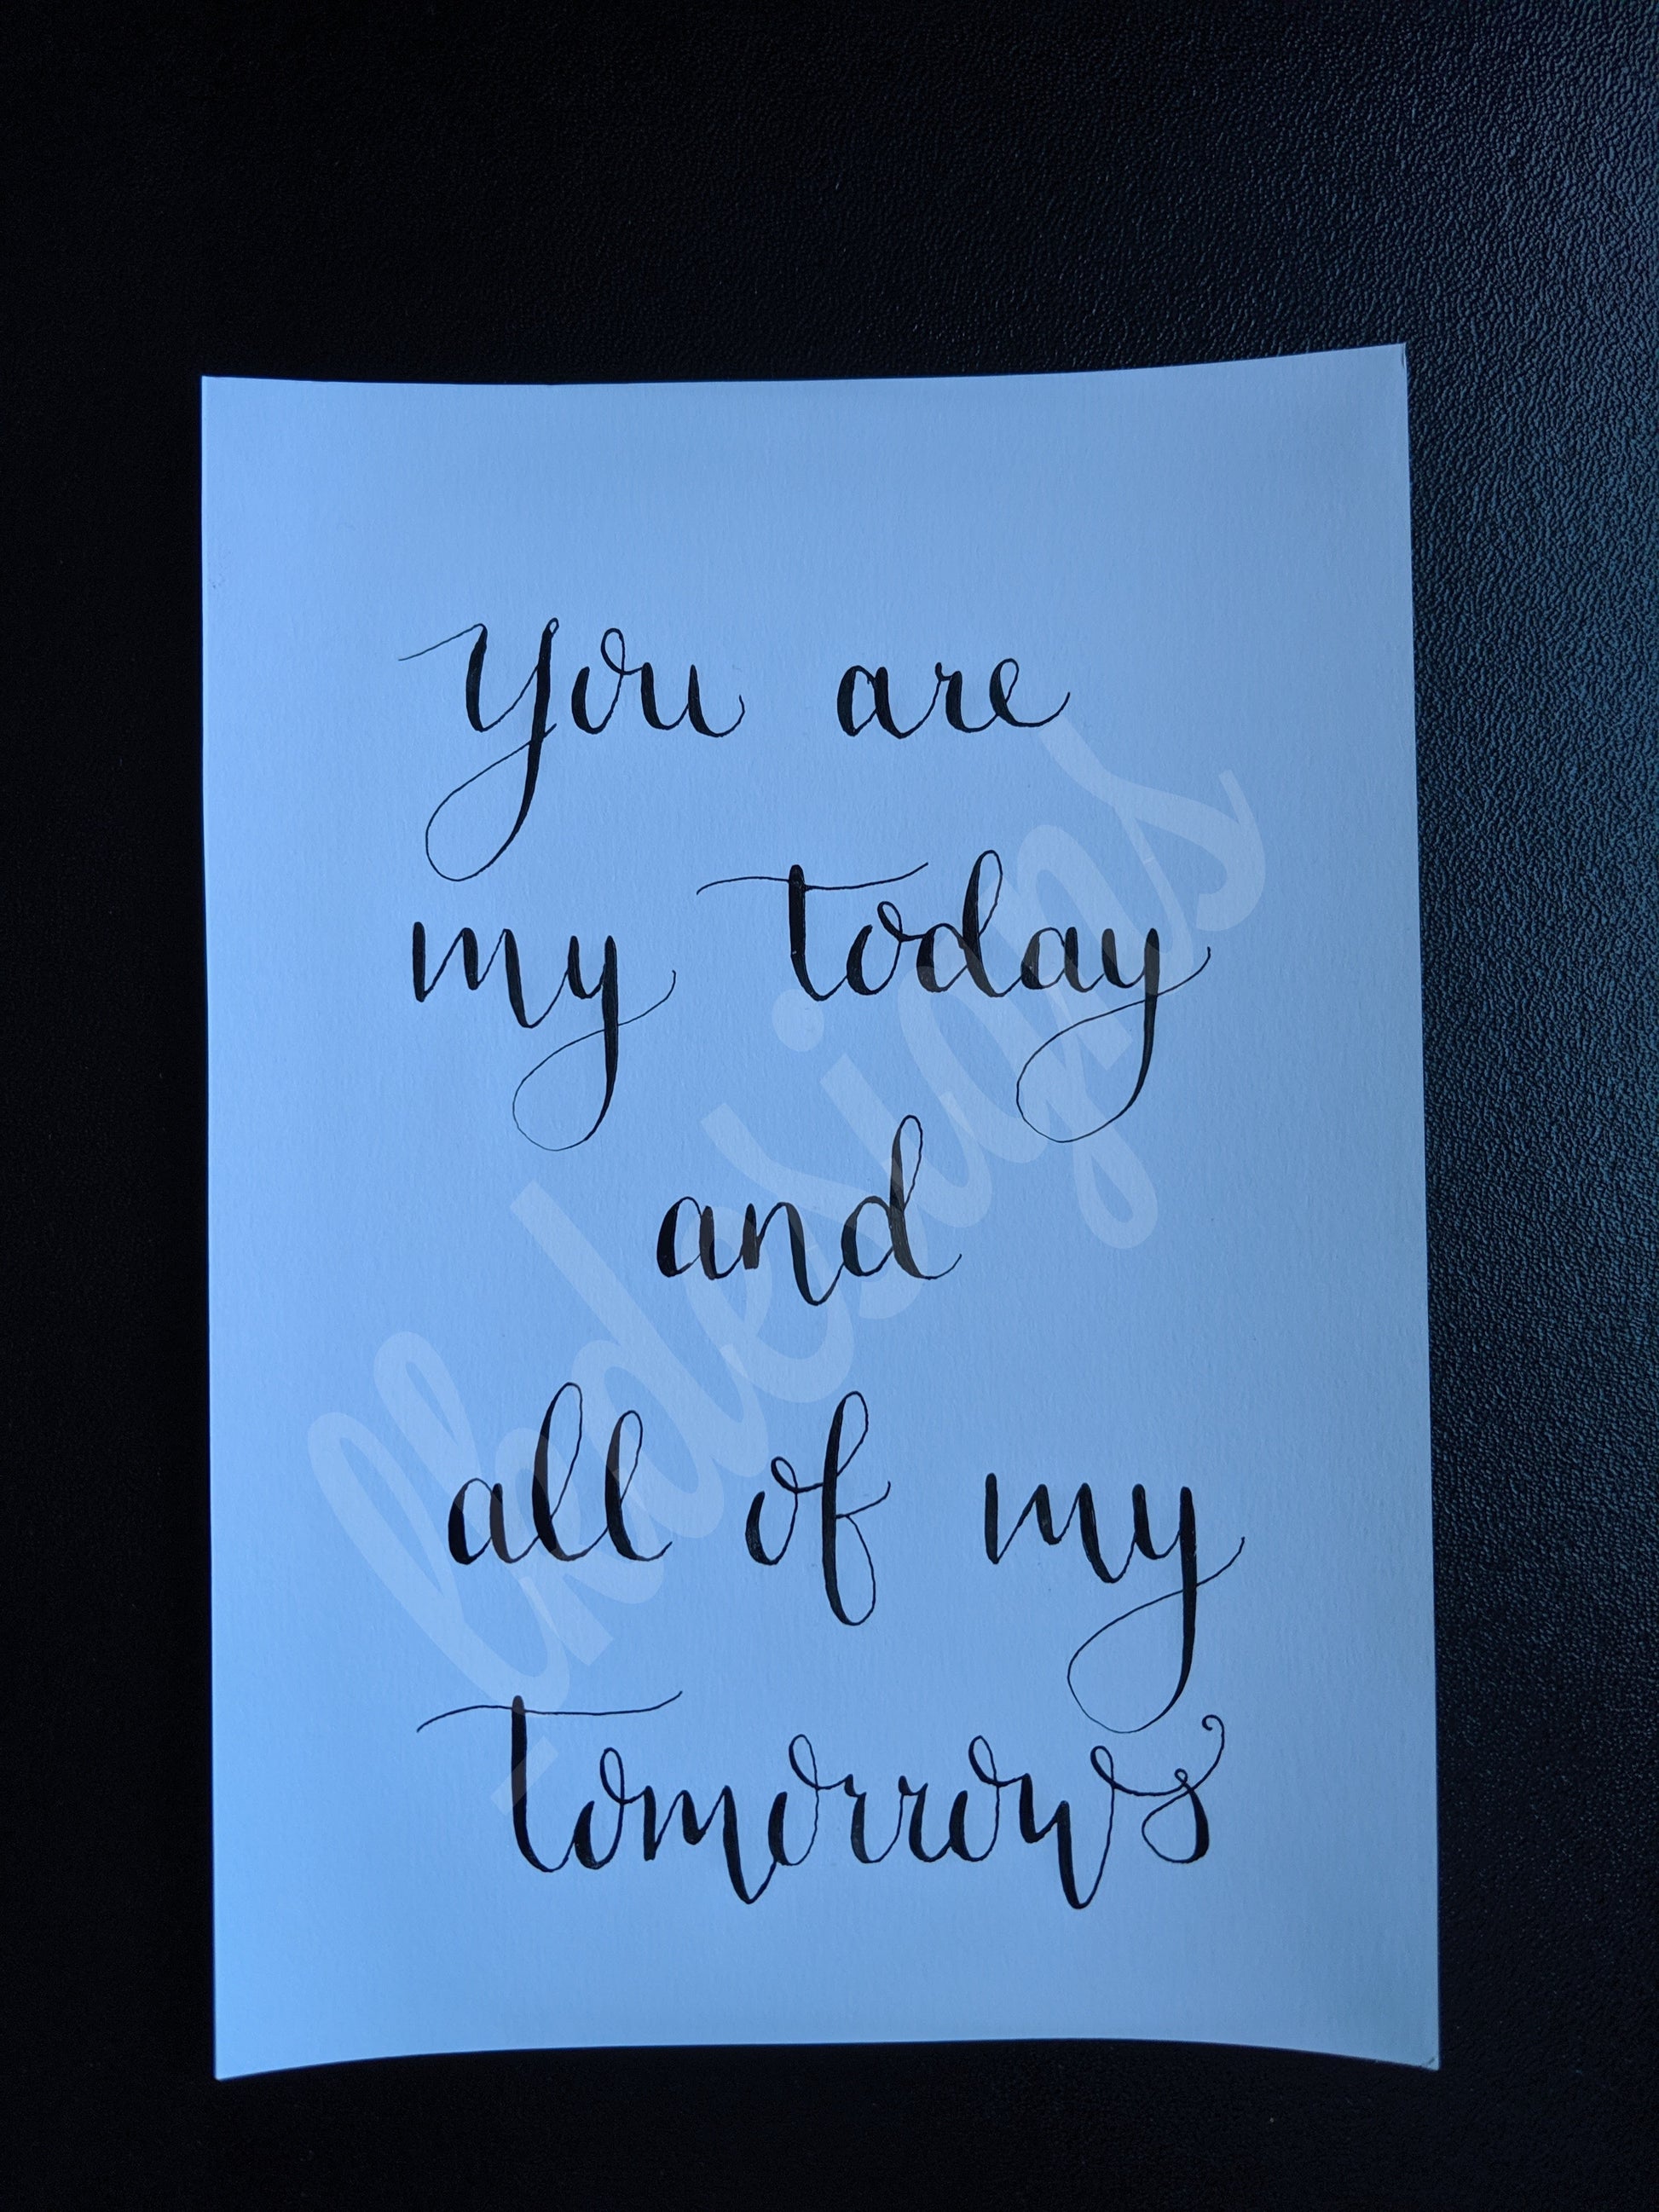 you are
my today
and
all of my
tomorrows